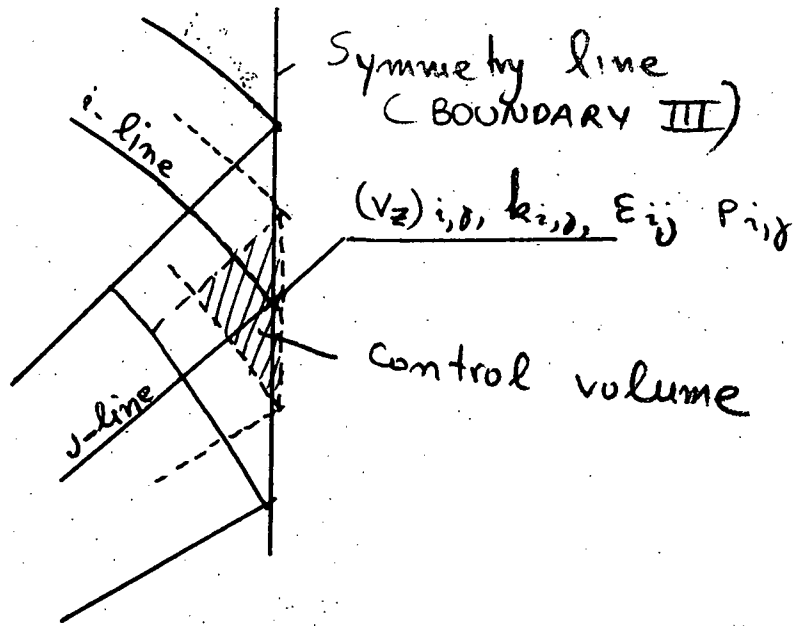 Symmetry line
(BOUNDARY III)
i-line
(Vz)i,j, ki,j, εij Pi,j
control volume
j-line